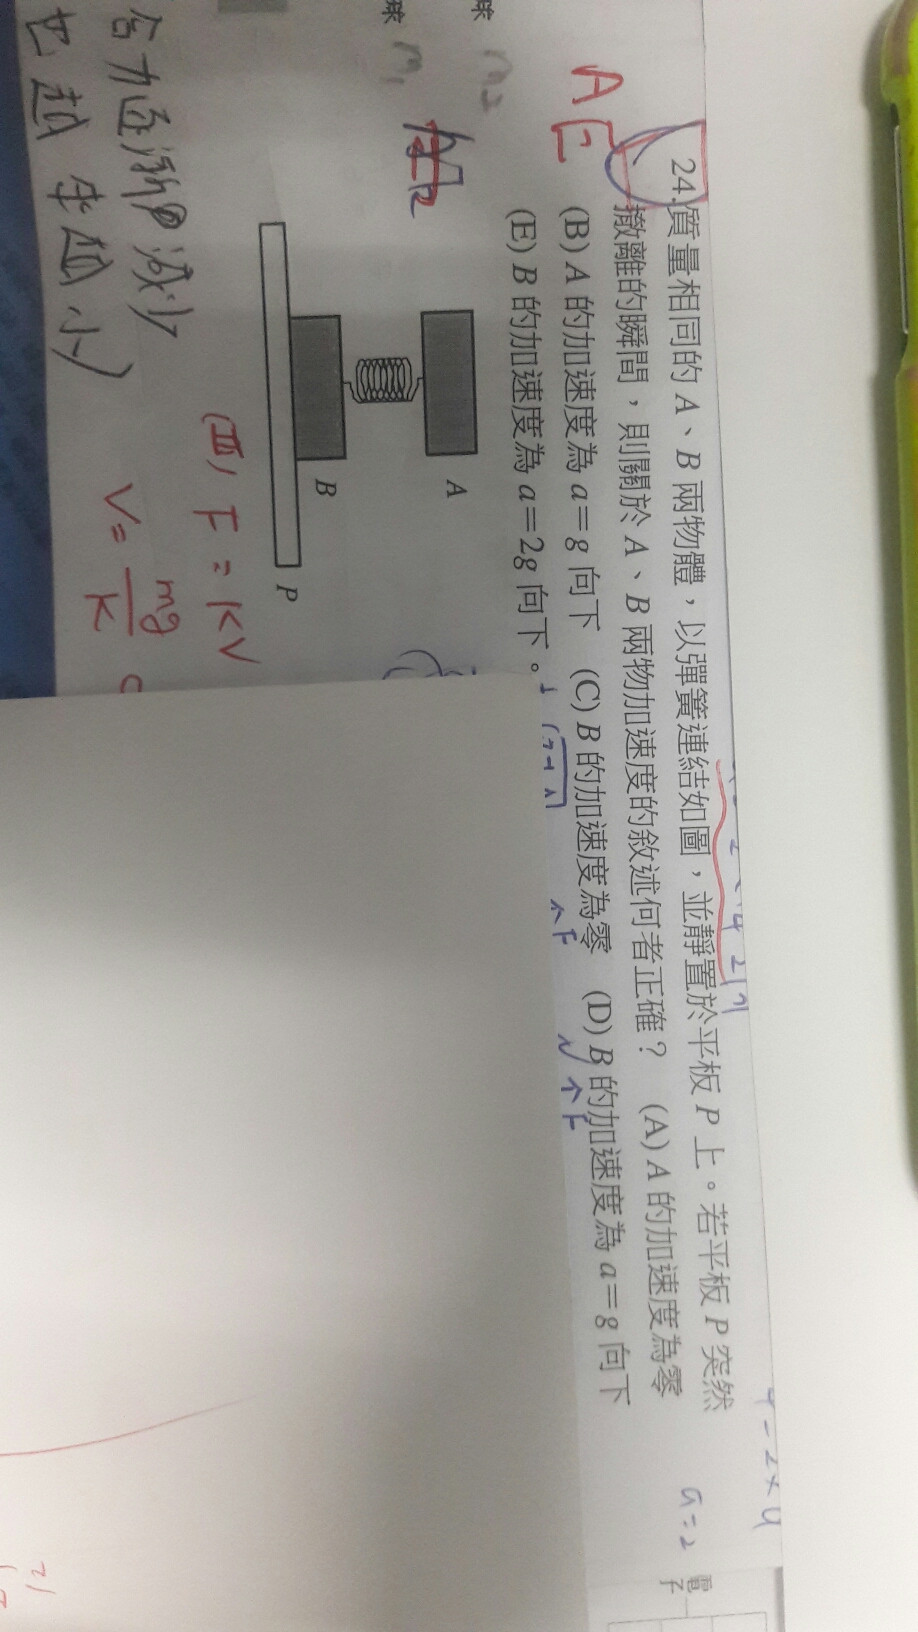 24.質量相同的 A、B 兩物體，以彈簧連結如圖，並靜置於平板 P 上。若平板 P 突然
撤離的瞬間，則關於 A、B 兩物加速度的敘述何者正確？ (A) A 的加速度為零
(B) A 的加速度為 a=g 向下 (C) B 的加速度為零 (D) B 的加速度為 a=g 向下
(E) B 的加速度為 a=2g 向下。
AE
A
B
P
球 m₂
球 m₁
(III) F=KV
V=mg/K
合力逐漸減少
也越來越小
↑F
↑F
a=2
電子